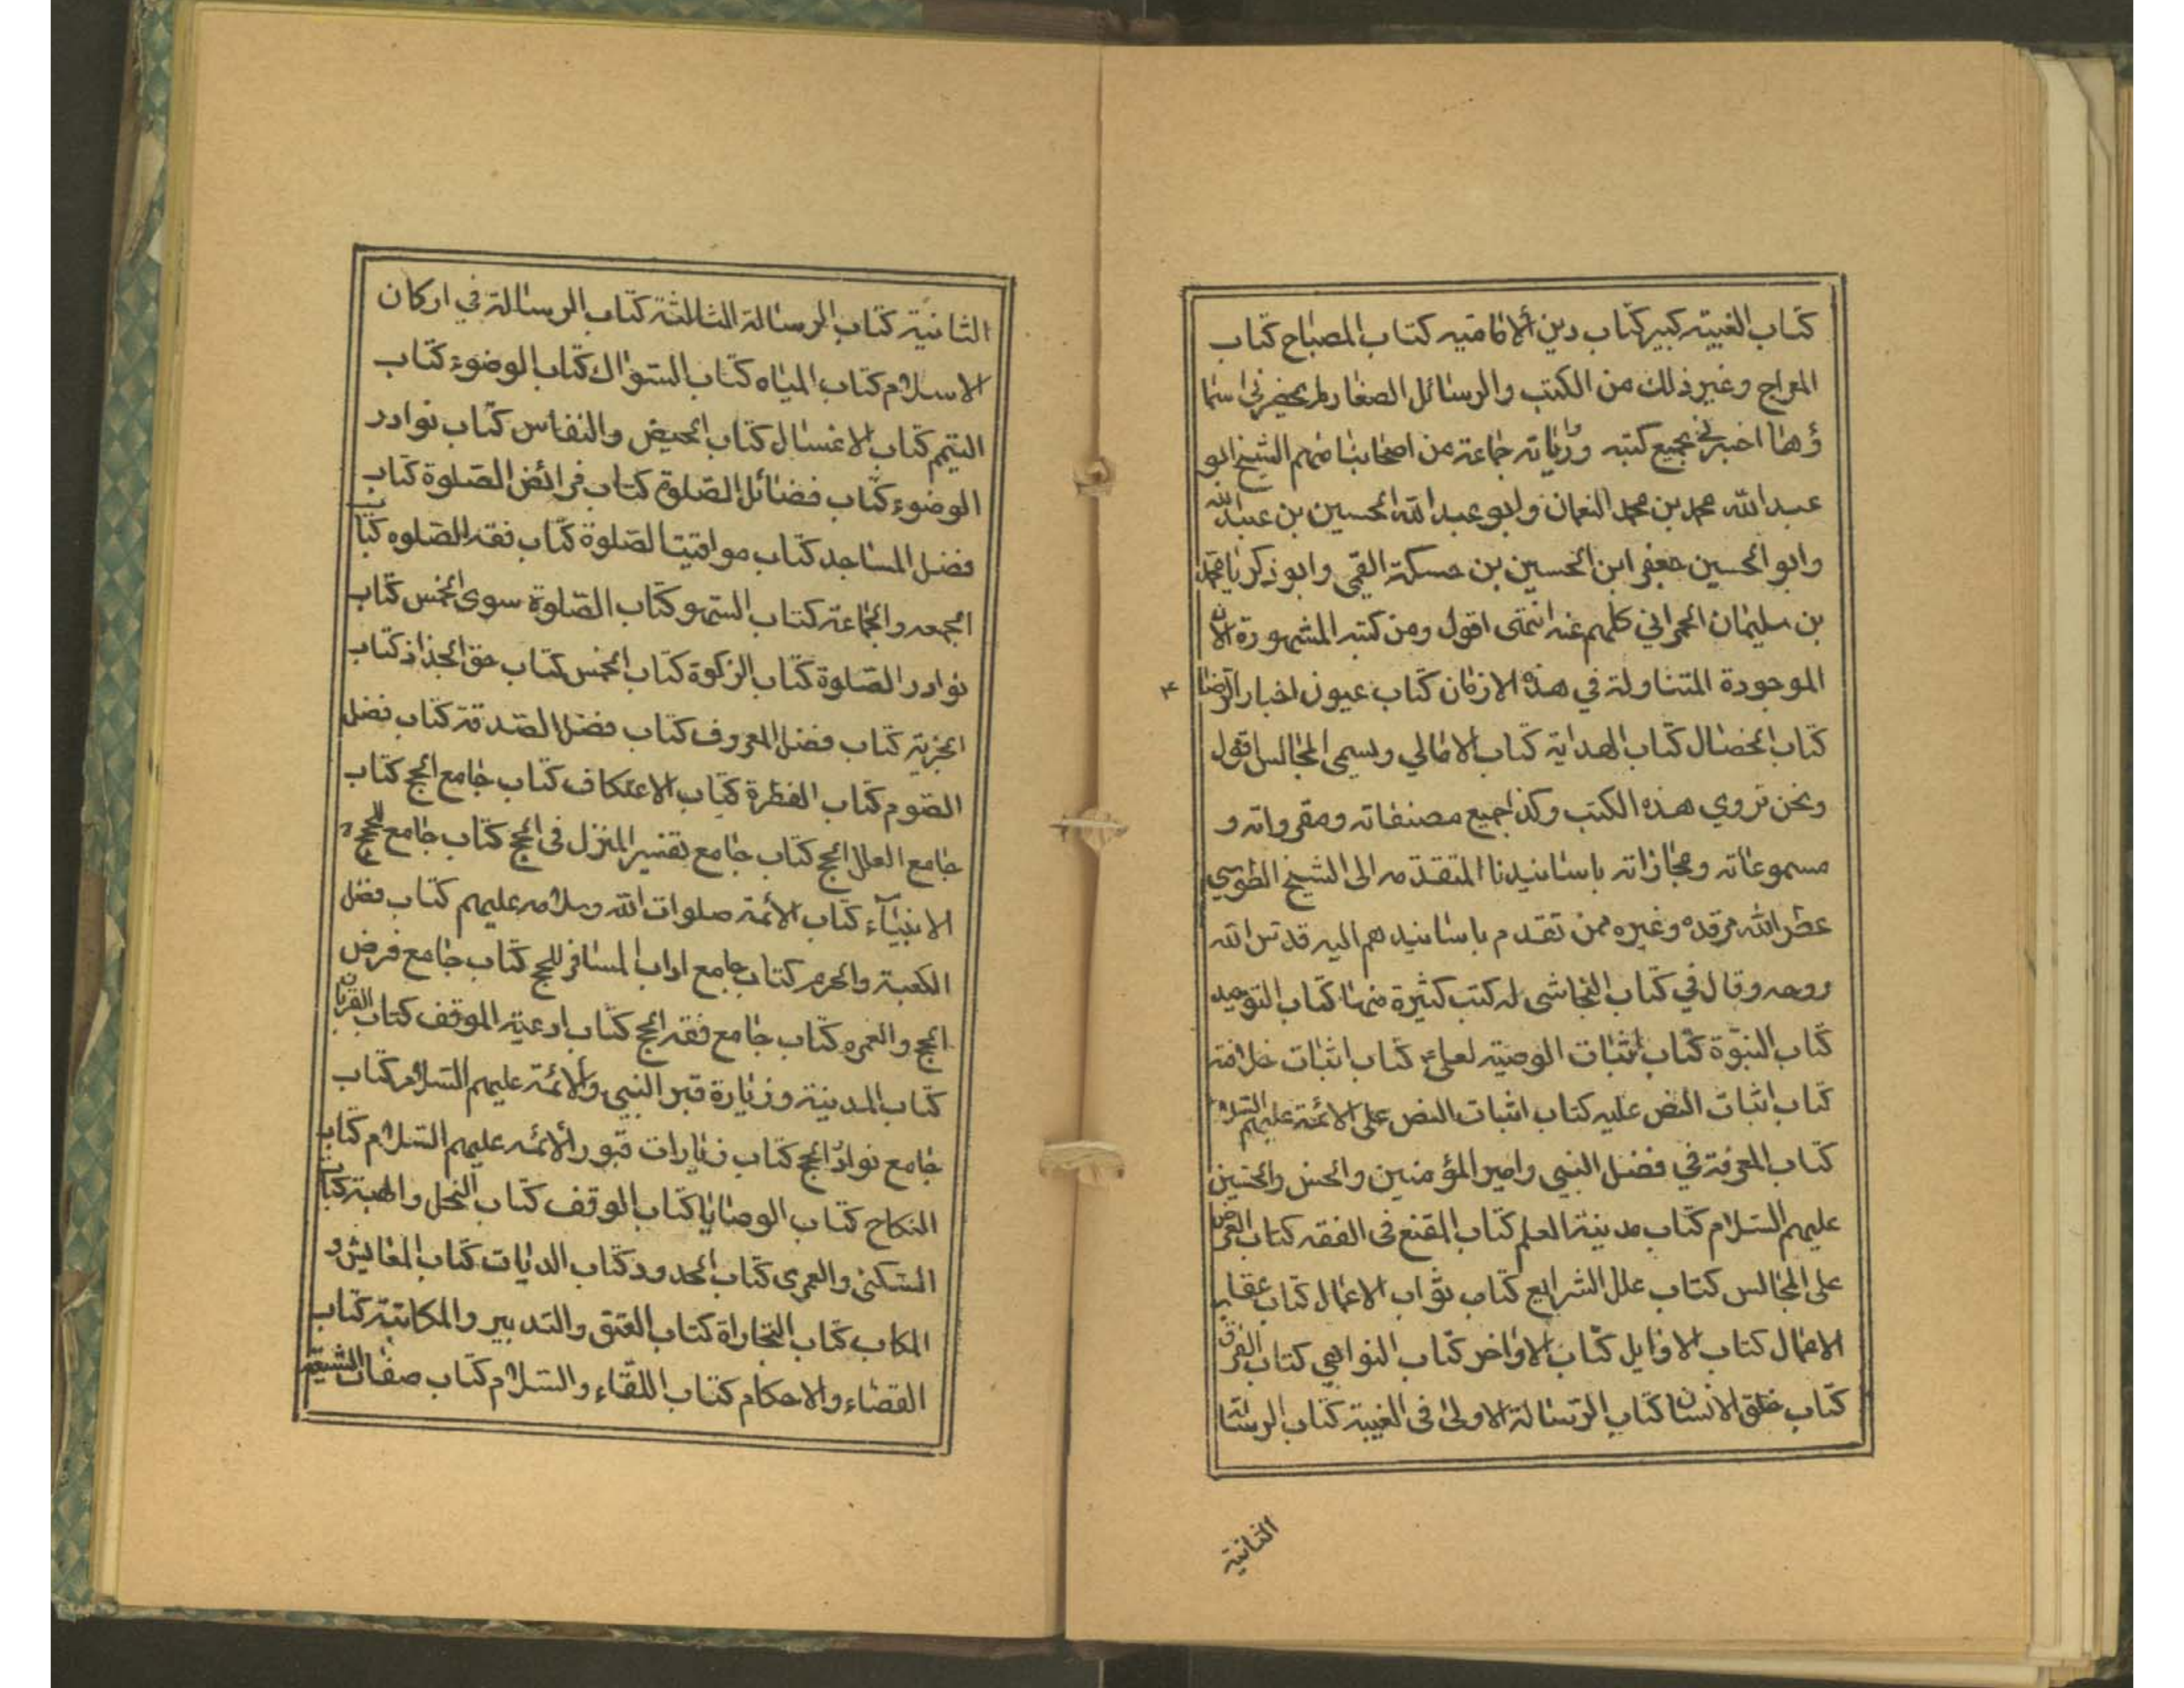 كتاب الغيبه كبير كتاب دين الامامیه كتاب المصباح كتاب
المعراج وغير ذلك من الكتب والرسائل الصغار لم يحضرني اسما
ؤها اخبرني بجميع كتبه ورواياته جماعة من اصحابنا منهم الشيخ ابو
عبد الله محمد بن محمد النعمان وابو عبد الله الحسين بن عبيد الله
وابو الحسين جعفر ابن الحسين بن حسكة القمي وابو زكريا محمد
بن سليمان الحمراني كلهم عنه انتهى اقول ومن كتبه المشهورة الان
الموجودة المتناولة في هذه الازمان كتاب عيون اخبار الرضا ع
كتاب الخصال كتاب الهداية كتاب الامالي ويسمى المجالس اقول
ونحن نروي هذه الكتب وكذا جميع مصنفاته ومقرواته و
مسموعاته ومجازاته باسانيدنا المتقدمه الى الشيخ الطوسي
عطر الله مرقده وغيره ممن تقدم باسانيدهم اليه قدس الله
روحه وقال في كتاب النجاشي له كتب كثيرة منها كتاب التوحيد
كتاب النبوة كتاب اثبات الوصيه لعلي ع كتاب اثبات خلافته
كتاب اثبات النص عليه كتاب اثبات النص على الائمة عليهم السلام
كتاب المعرفة في فضل النبي وامير المؤمنين والحسن والحسين
عليهم السلام كتاب مدينة العلم كتاب المقنع في الفقه كتاب العرض
على المجالس كتاب علل الشرايع كتاب ثواب الاعمال كتاب عقاب
الاعمال كتاب الاوايل كتاب الاواخر كتاب النواهي كتاب الفرق
كتاب خلق الانسان كتاب الرسالة الاولى في الغيبة كتاب الرسالة
الثانية
الثانية كتاب الرسالة الثالثة كتاب الرسالة في اركان
الاسلام كتاب المياه كتاب السواك كتاب الوضوء كتاب
التيمم كتاب الاغسال كتاب الحيض والنفاس كتاب نوادر
الوضوء كتاب فضائل الصلوة كتاب فرائض الصلوة كتاب
فضل المساجد كتاب مواقيت الصلوة كتاب فقه الصلوه كتاب
الجمعه والجماعة كتاب السهو كتاب الصلوة سوى الخمس كتاب
نوادر الصلوة كتاب الزكوة كتاب الخمس كتاب حق الجذاذ كتاب
الجزية كتاب فضل المعروف كتاب فضل الصدقة كتاب فضل
الصوم كتاب الفطرة كتاب الاعتكاف كتاب جامع الحج كتاب
جامع العلل الحج كتاب جامع تفسير المنزل في الحج كتاب جامع حجج
الانبياء كتاب الائمة صلوات الله وسلامه عليهم كتاب فضل
الكعبة والحرم كتاب جامع اداب المسافر للحج كتاب جامع فرض
الحج والعمره كتاب جامع فقه الحج كتاب ادعية الموقف كتاب القربان
كتاب المدينة وزيارة قبر النبي والائمة عليهم السلام كتاب
جامع نوادر الحج كتاب زيارات قبور الائمه عليهم السلام كتاب
النكاح كتاب الوصايا كتاب الوقف كتاب النحل والهبة كتاب
السكنى والعمرى كتاب الحدود كتاب الديات كتاب المعايش و
المكاب كتاب التجاراة كتاب العتق والتدبير والمكاتبة كتاب
القضاء والاحكام كتاب اللقاء والسلام كتاب صفات الشيعة